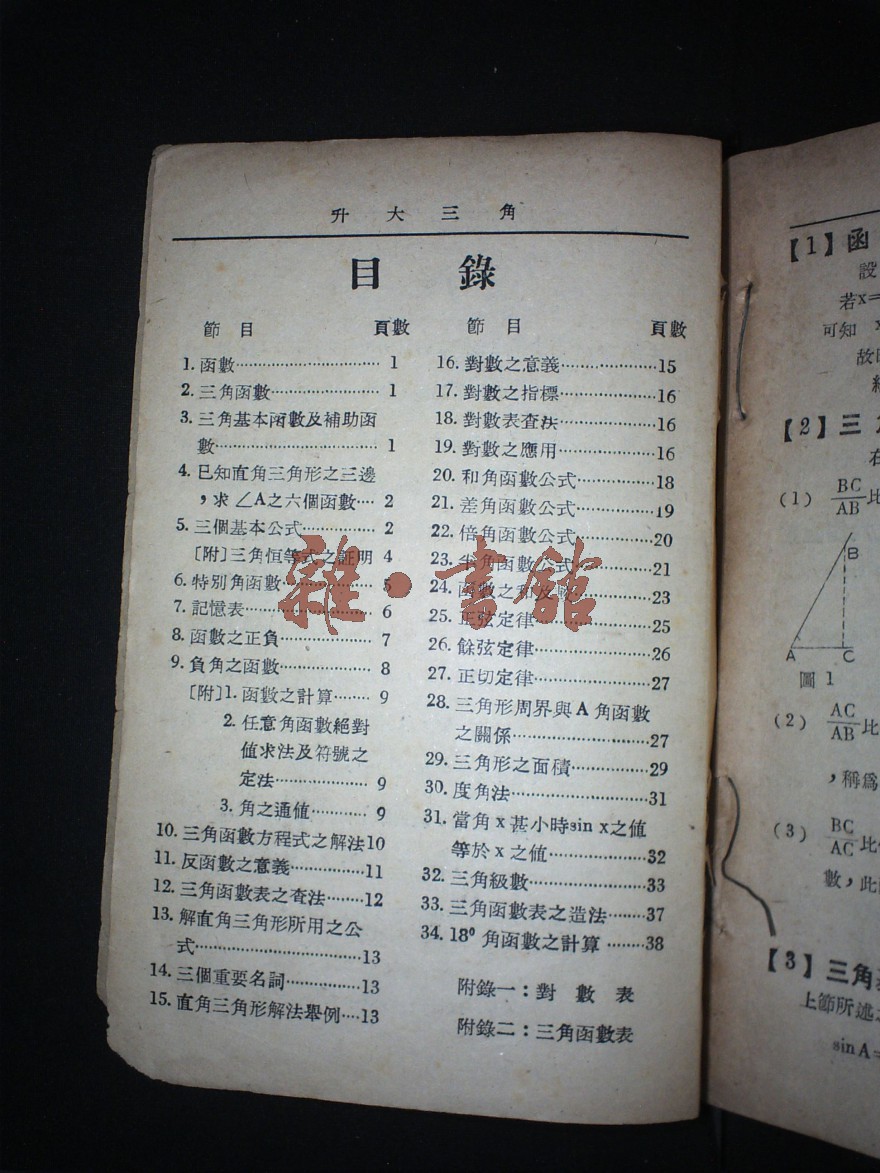 升大三角
目錄
節目 頁數
1. 函數 1
2. 三角函數 1
3. 三角基本函數及補助函
數 1
4. 已知直角三角形之三邊
，求∠A之六個函數 2
5. 三個基本公式 2
〔附〕三角恒等式之証明 4
6. 特別角函數 5
7. 記憶表 6
8. 函數之正負 7
9. 負角之函數 8
〔附〕1. 函數之計算 9
2. 任意角函數絕對
值求法及符號之
定法 9
3. 角之通値 9
10. 三角函數方程式之解法10
11. 反函數之意義 11
12. 三角函數表之查法 12
13. 解直角三角形所用之公
式 13
14. 三個重要名詞 13
15. 直角三角形解法舉例 13
節目 頁數
16. 對數之意義 15
17. 對數之指標 16
18. 對數表査法 16
19. 對數之應用 16
20. 和角函數公式 18
21. 差角函數公式 19
22. 倍角函數公式 20
23. 半角函數公式 21
24. 函數之和及 23
25. 正弦定律 25
26. 餘弦定律 26
27. 正切定律 27
28. 三角形周界與A角函數
之關係 27
29. 三角形之面積 29
30. 度角法 31
31. 當角x甚小時sin x之値
等於x之値 32
32. 三角級數 33
33. 三角函數表之造法 37
34. 18°角函數之計算 38
附錄一：對數表
附錄二：三角函數表
雜·書館
【1】函
設
若x=
可知 x
故
【2】三
右
(1) BC/AB 比
B
A C
圖 1
(2) AC/AB 比
，稱爲
(3) BC/AC 比
數，此
【3】三角
上節所述
sin A=